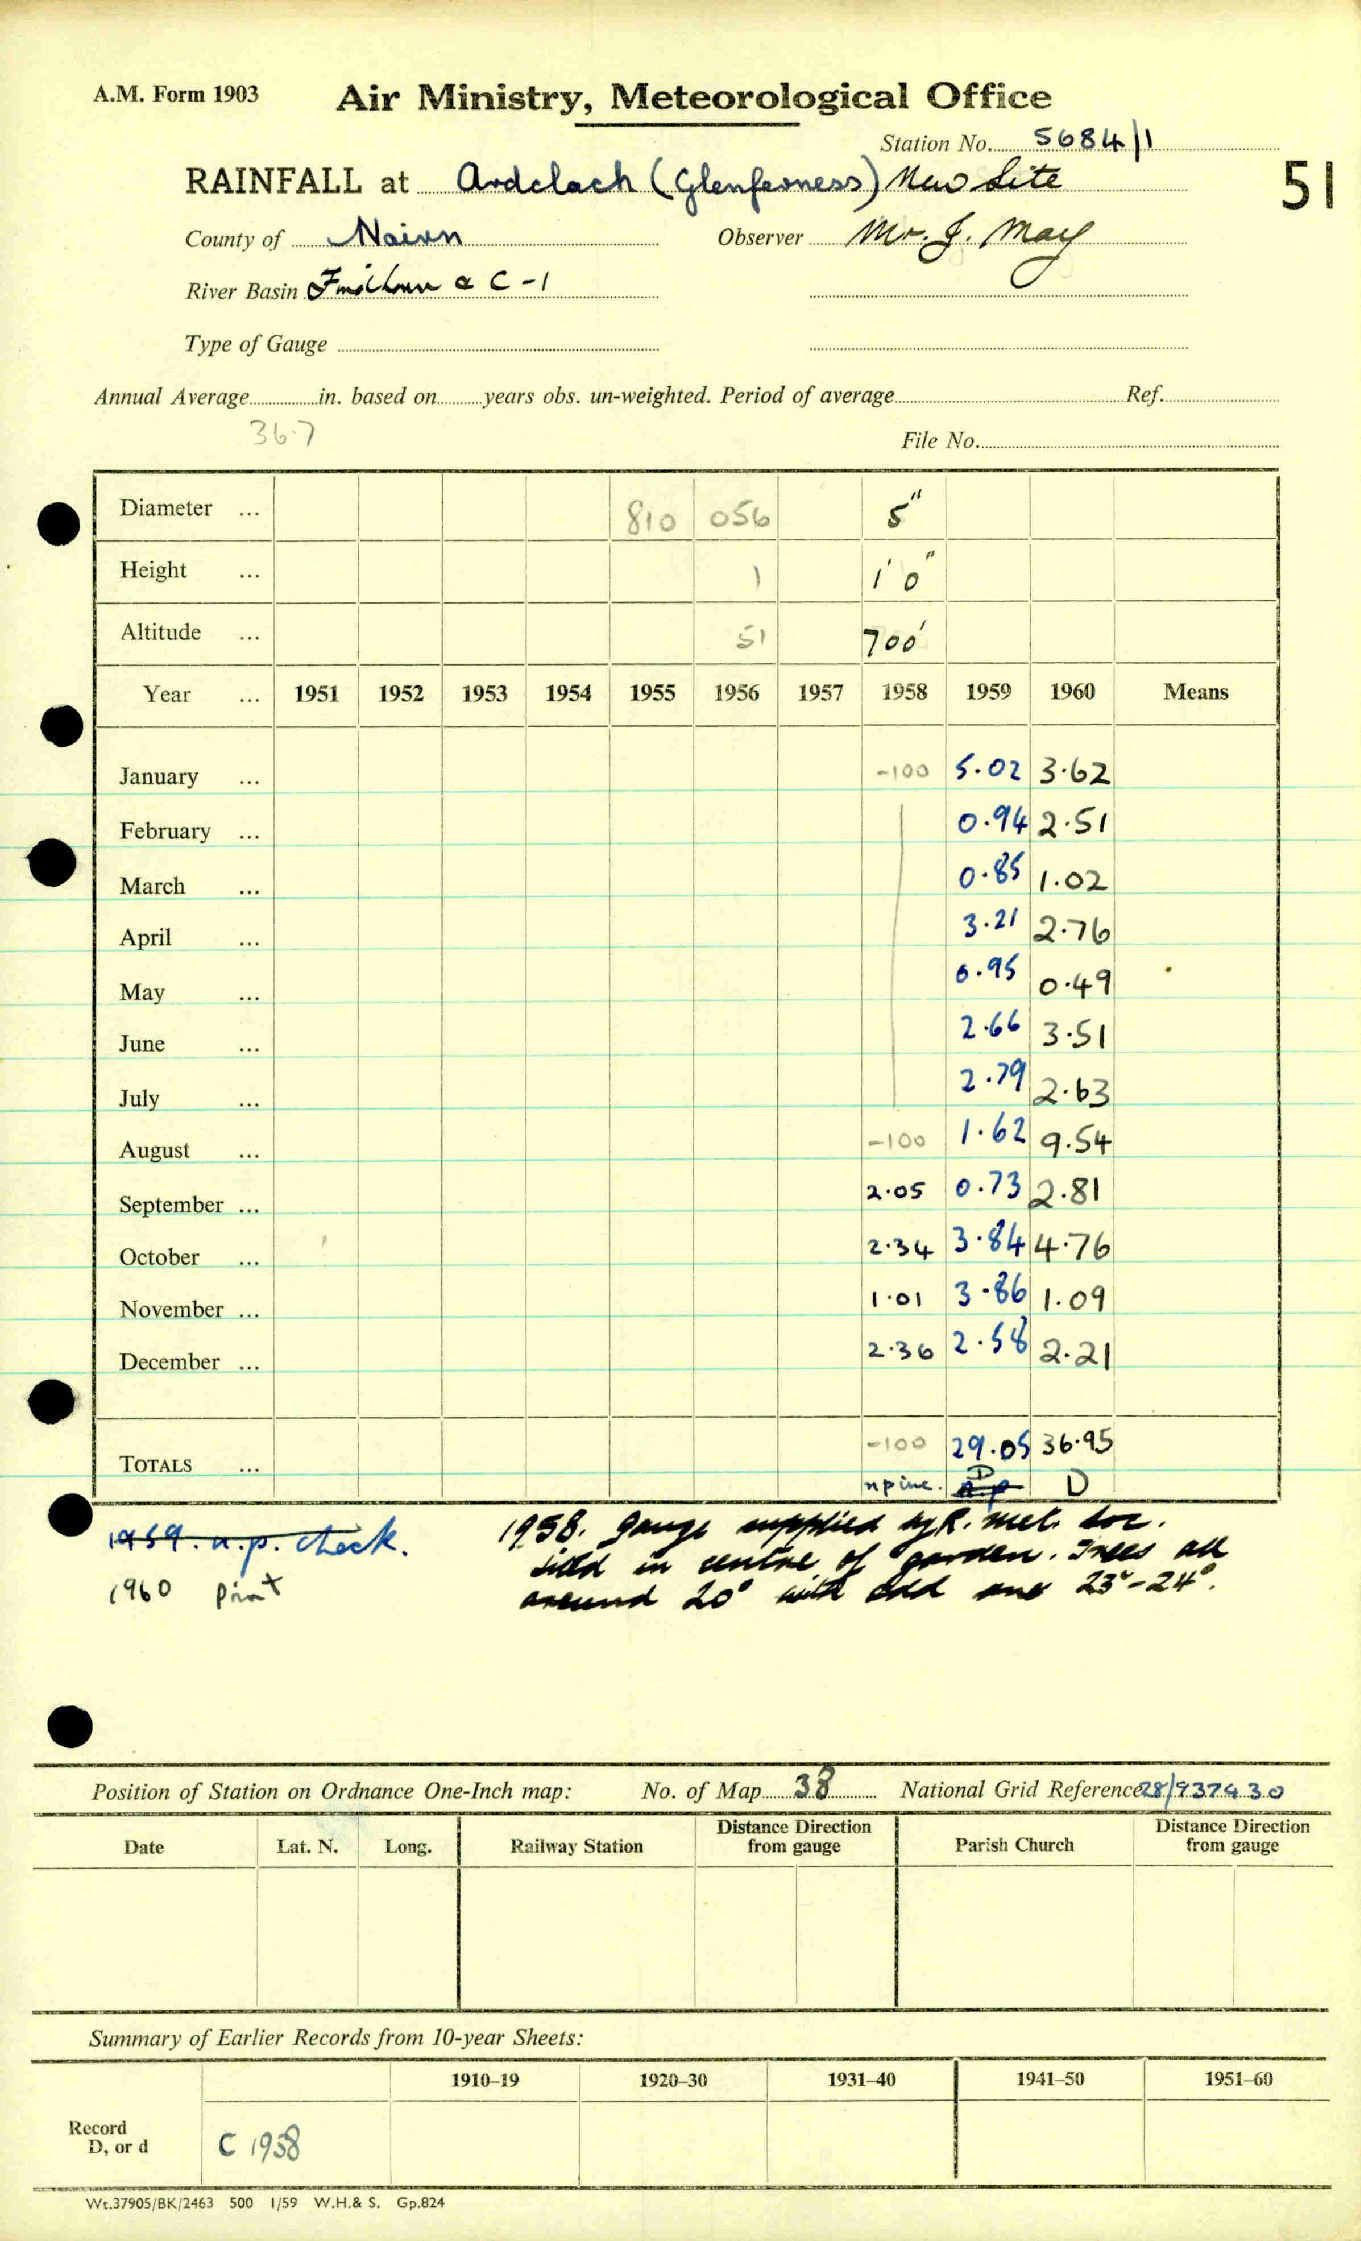 A.M. Form 1903 Air Ministry, Meteorological Office
Station No. 5684/1
RAINFALL at Ardclach (Glenferness) New Site 51
County of Nairn Observer Mr. J. May
River Basin Findhorn & C-1
Type of Gauge
Annual Average in. based on years obs. un-weighted. Period of average Ref.
36.7 File No.
Diameter ... 810 056 5"
Height ... 1 1' 0"
Altitude ... 51 700'
Year ... 1951 1952 1953 1954 1955 1956 1957 1958 1959 1960 Means
January ... -100 5.02 3.62
February ... 0.94 2.51
March ... 0.85 1.02
April ... 3.21 2.76
May ... 0.95 0.49
June ... 2.66 3.51
July ... 2.79 2.63
August ... -100 1.62 9.54
September ... 2.05 0.73 2.81
October ... 2.34 3.84 4.76
November ... 1.01 3.86 1.09
December ... 2.36 2.58 2.21
TOTALS ... -100 29.05 36.95
n p inc. n.p D D
1959. n.p. check. 1958. Gauge supplied by R. Met. Soc.
sited in centre of garden. Trees all
1960 print around 20° with odd one 23°-24°.
Position of Station on Ordnance One-Inch map: No. of Map 38 National Grid Reference 28/937430
Date Lat. N. Long. Railway Station Distance Direction from gauge Parish Church Distance Direction from gauge
Summary of Earlier Records from 10-year Sheets:
1910-19 1920-30 1931-40 1941-50 1951-60
Record
D, or d C 1958
Wt.37905/BK/2463 500 1/59 W.H.& S. Gp.824